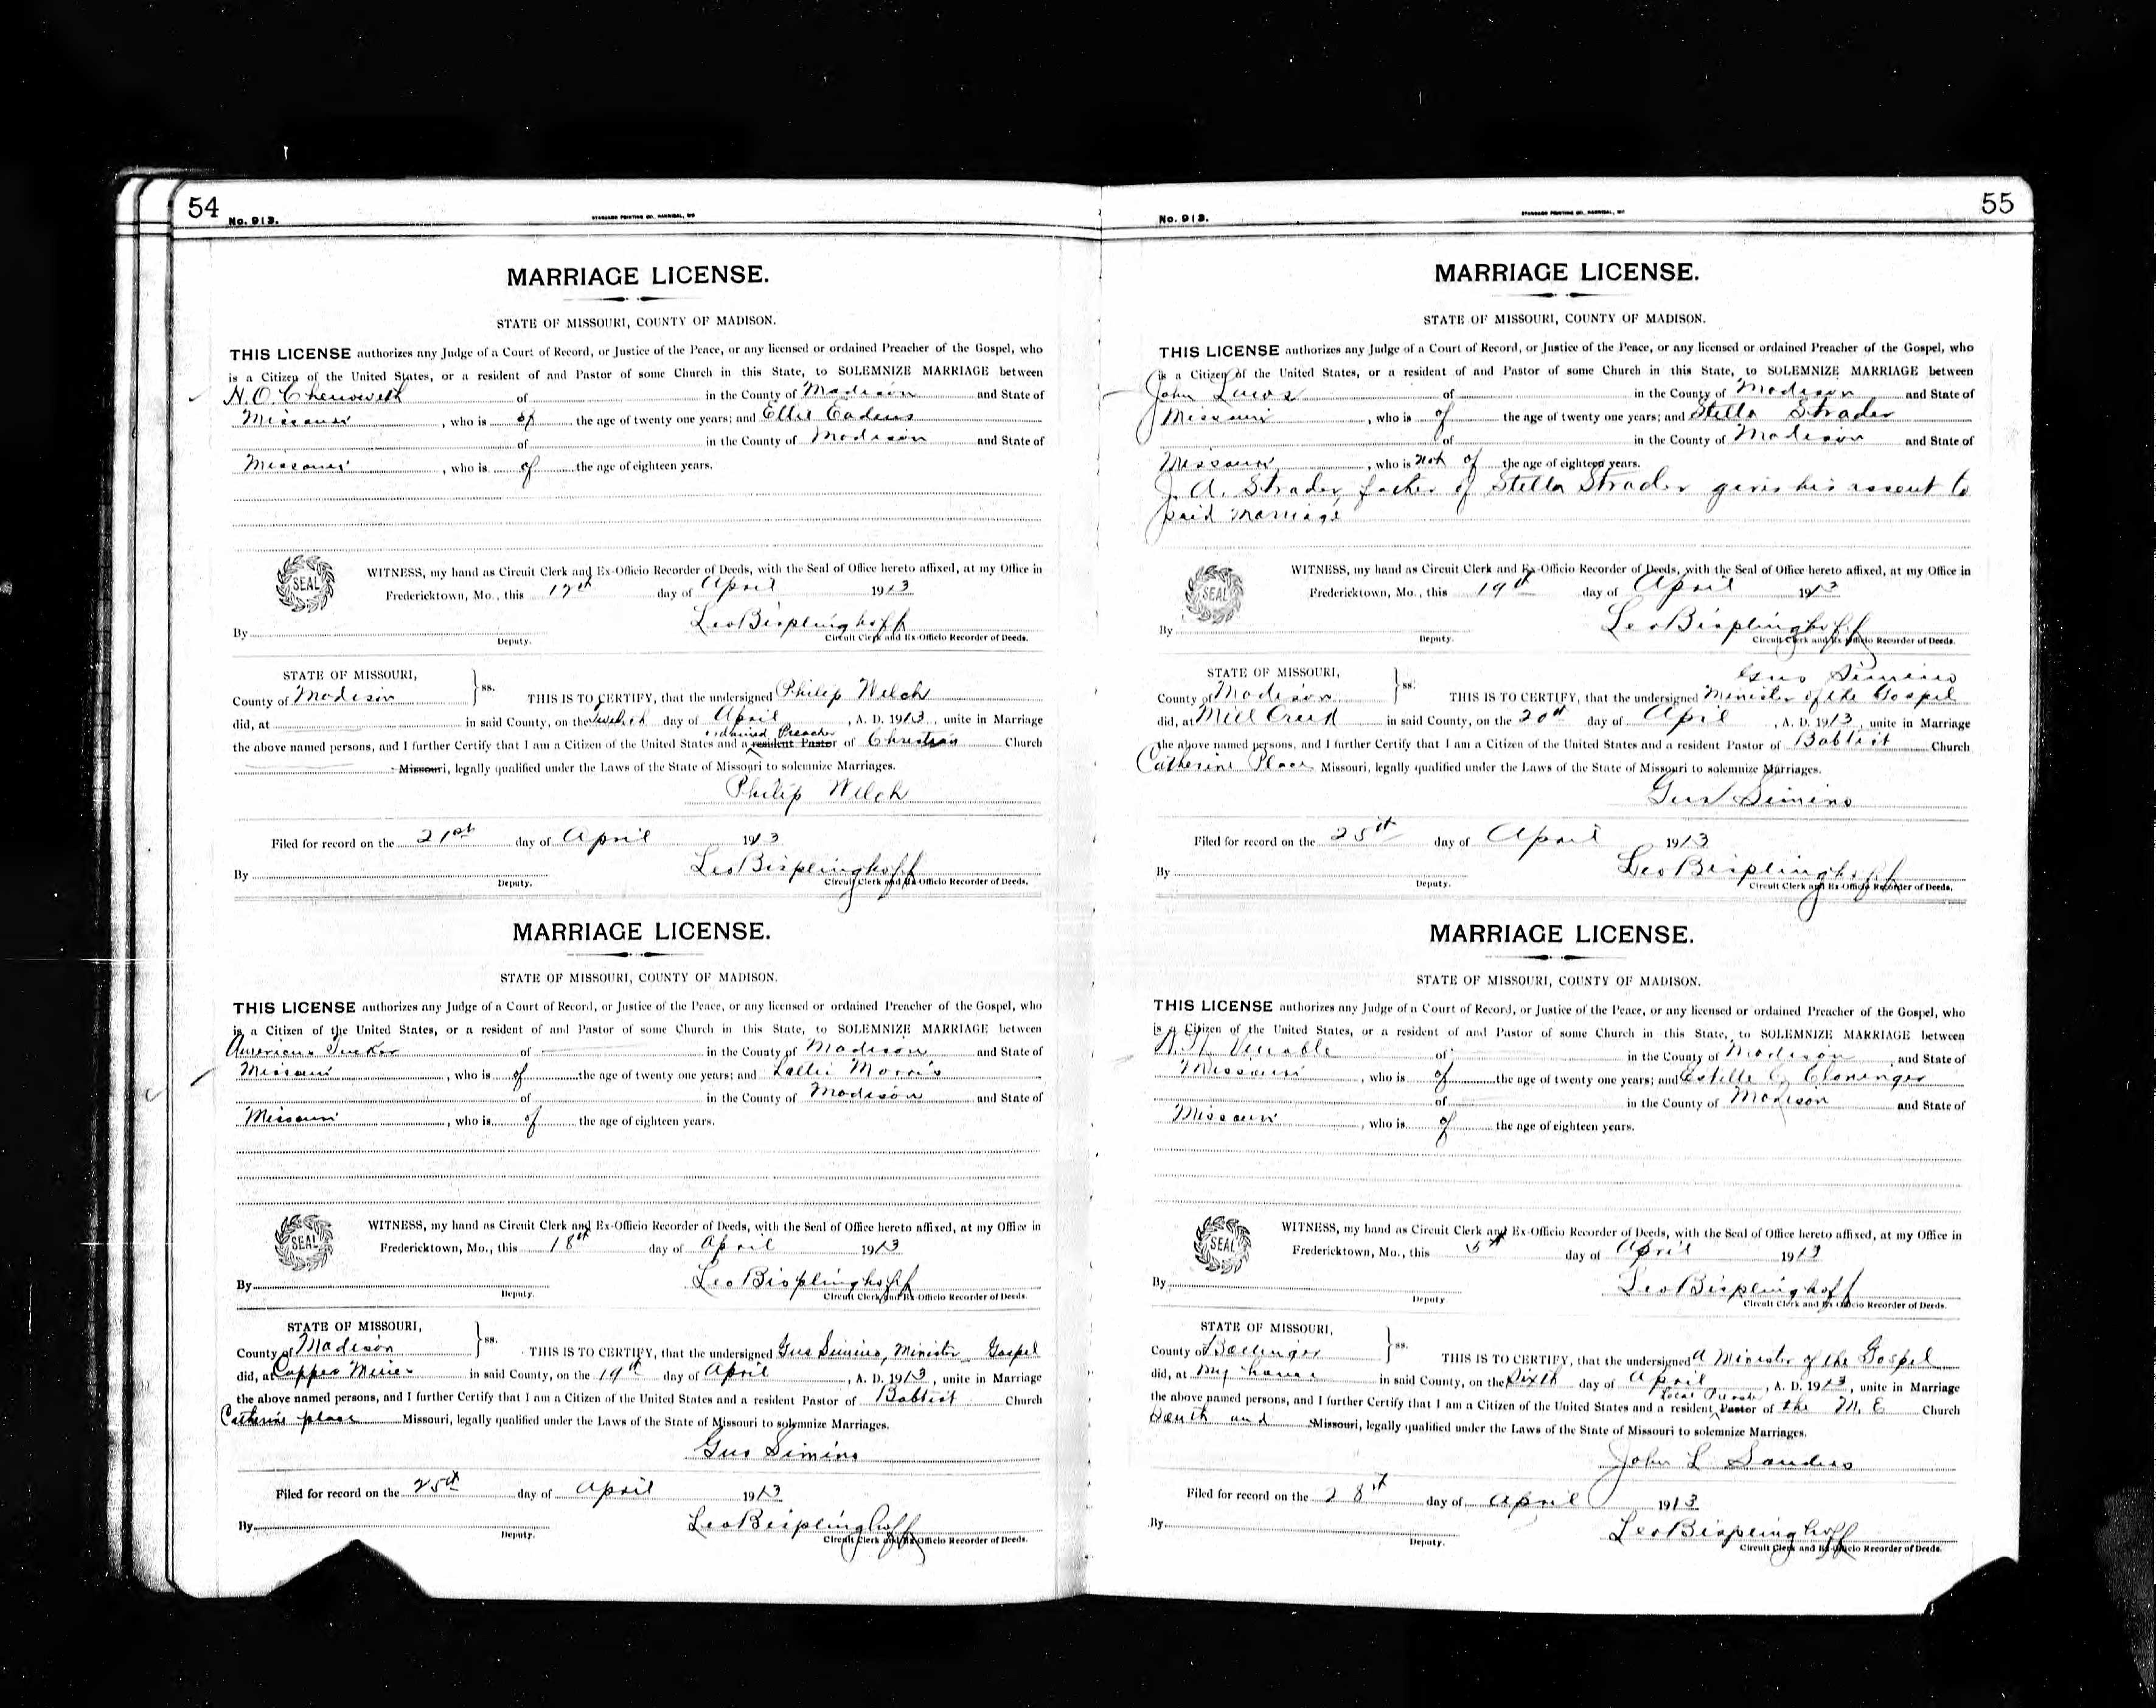 54 No. 913. STANDARD PRINTING CO., HANNIBAL, MO
MARRIAGE LICENSE.
STATE OF MISSOURI, COUNTY OF MADISON.
THIS LICENSE authorizes any Judge of a Court of Record, or Justice of the Peace, or any licensed or ordained Preacher of the Gospel, who
is a Citizen of the United States, or a resident of and Pastor of some Church in this State, to SOLEMNIZE MARRIAGE between
H. O. Chenoweth of in the County of Madison and State of
Missouri, who is of the age of twenty one years; and Ellie Eadens
of in the County of Madison and State of
Missouri, who is of the age of eighteen years.
SEAL
WITNESS, my hand as Circuit Clerk and Ex-Officio Recorder of Deeds, with the Seal of Office hereto affixed, at my Office in
Fredericktown, Mo., this 12th day of April 1913
Leo Bisplinghoff
By Deputy. Circuit Clerk and Ex-Officio Recorder of Deeds.
STATE OF MISSOURI,
County of Madison } ss. THIS IS TO CERTIFY, that the undersigned Philip Welch
did, at in said County, on the day of April, A. D. 1913, unite in Marriage
ordained Preacher
the above named persons, and I further Certify that I am a Citizen of the United States and a resident Pastor of Christian Church
Missouri, legally qualified under the Laws of the State of Missouri to solemnize Marriages.
Philip Welch
Filed for record on the 21st day of April 1913
Leo Bisplinghoff
By Deputy. Circuit Clerk and Ex-Officio Recorder of Deeds.
MARRIAGE LICENSE.
STATE OF MISSOURI, COUNTY OF MADISON.
THIS LICENSE authorizes any Judge of a Court of Record, or Justice of the Peace, or any licensed or ordained Preacher of the Gospel, who
is a Citizen of the United States, or a resident of and Pastor of some Church in this State, to SOLEMNIZE MARRIAGE between
Americus Tucker of in the County of Madison and State of
Missouri, who is of the age of twenty one years; and Morris
of in the County of Madison and State of
Missouri, who is of the age of eighteen years.
SEAL
WITNESS, my hand as Circuit Clerk and Ex-Officio Recorder of Deeds, with the Seal of Office hereto affixed, at my Office in
Fredericktown, Mo., this 18th day of April 1913
Leo Bisplinghoff
By Deputy. Circuit Clerk and Ex-Officio Recorder of Deeds.
STATE OF MISSOURI,
County of Madison } ss. THIS IS TO CERTIFY, that the undersigned Gus Simino, Minister Gospel
did, at in said County, on the 19th day of April, A. D. 1913, unite in Marriage
the above named persons, and I further Certify that I am a Citizen of the United States and a resident Pastor of Babtist Church
Catherine place Missouri, legally qualified under the Laws of the State of Missouri to solemnize Marriages.
Gus Simino
Filed for record on the 25th day of April 1913
Leo Bisplinghoff
By Deputy. Circuit Clerk and Ex-Officio Recorder of Deeds.
No. 913. STANDARD PRINTING CO., HANNIBAL, MO 55
MARRIAGE LICENSE.
STATE OF MISSOURI, COUNTY OF MADISON.
THIS LICENSE authorizes any Judge of a Court of Record, or Justice of the Peace, or any licensed or ordained Preacher of the Gospel, who
is a Citizen of the United States, or a resident of and Pastor of some Church in this State, to SOLEMNIZE MARRIAGE between
John Laws of in the County of Madison and State of
Missouri, who is of the age of twenty one years; and Stella Strader
of in the County of Madison and State of
Missouri, who is not of the age of eighteen years.
J. A. Strader, father of Stella Strader gives his assent to
said marriage
SEAL
WITNESS, my hand as Circuit Clerk and Ex-Officio Recorder of Deeds, with the Seal of Office hereto affixed, at my Office in
Fredericktown, Mo., this 19th day of April 1913
Leo Bisplinghoff
By Deputy. Circuit Clerk and Ex-Officio Recorder of Deeds.
STATE OF MISSOURI, Gus Simino
County of Madison } ss. THIS IS TO CERTIFY, that the undersigned Minister of the Gospel
did, at Mill Creek in said County, on the 20th day of April, A. D. 1913, unite in Marriage
the above named persons, and I further Certify that I am a Citizen of the United States and a resident Pastor of Babtist Church
Catherine Place Missouri, legally qualified under the Laws of the State of Missouri to solemnize Marriages.
Gus Simino
Filed for record on the 25th day of April 1913
Leo Bisplinghoff
By Deputy. Circuit Clerk and Ex-Officio Recorder of Deeds.
MARRIAGE LICENSE.
STATE OF MISSOURI, COUNTY OF MADISON.
THIS LICENSE authorizes any Judge of a Court of Record, or Justice of the Peace, or any licensed or ordained Preacher of the Gospel, who
is a Citizen of the United States, or a resident of and Pastor of some Church in this State, to SOLEMNIZE MARRIAGE between
Venable of in the County of Madison and State of
Missouri, who is of the age of twenty one years; and Estelle Cloninger
of in the County of Madison and State of
Missouri, who is of the age of eighteen years.
SEAL
WITNESS, my hand as Circuit Clerk and Ex-Officio Recorder of Deeds, with the Seal of Office hereto affixed, at my Office in
Fredericktown, Mo., this 5th day of April 1913
Leo Bisplinghoff
By Deputy Circuit Clerk and Ex Officio Recorder of Deeds.
STATE OF MISSOURI,
County of Bollinger } ss. THIS IS TO CERTIFY, that the undersigned a Minister of the Gospel
did, at my house in said County, on the Sixth day of April, A. D. 1913, unite in Marriage
Local
the above named persons, and I further Certify that I am a Citizen of the United States and a resident Pastor of the M. E Church
South and Missouri, legally qualified under the Laws of the State of Missouri to solemnize Marriages.
John L Sanders
Filed for record on the 28th day of April 1913
Leo Bisplinghoff
By Deputy. Circuit Clerk and Ex-Officio Recorder of Deeds.